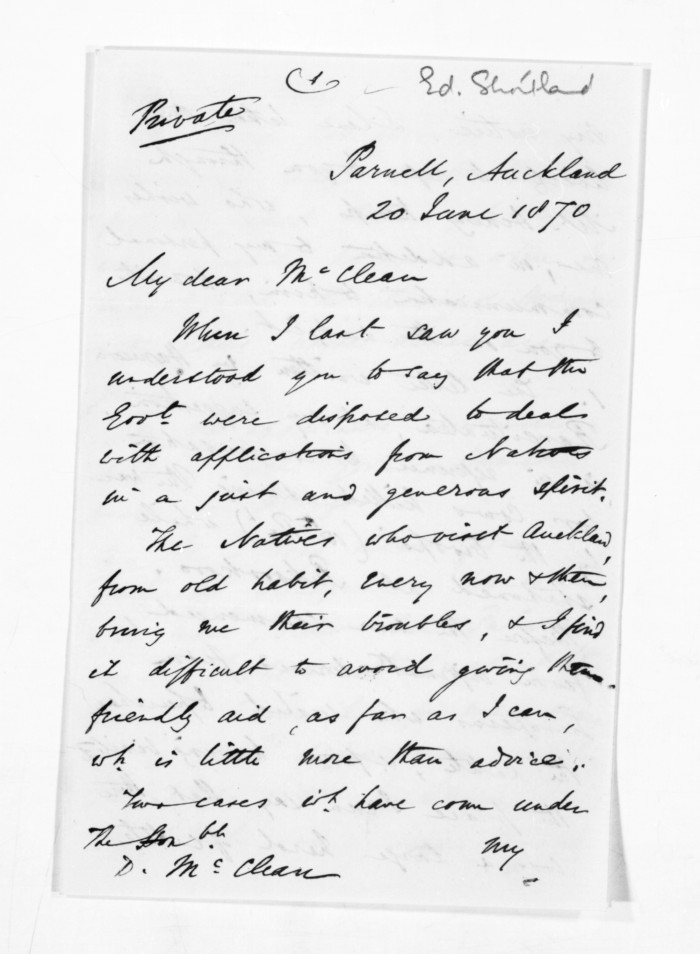 (1)
Ed. Shortland
Private
Parnell, Auckland
20 June 1870
My dear McClean
When I last saw you I
understood you to say that the
Govt. were disposed to deal
with applications from Natives
in a just and generous spirit.
The Natives who visit Auckland,
from old habit, every now & then,
bring me their troubles, & I find
it difficult to avoid giving them
friendly aid, as far as I can,
wh. is little more than advice.
Two cases wh. have come under
The Honble
my
D. McClean